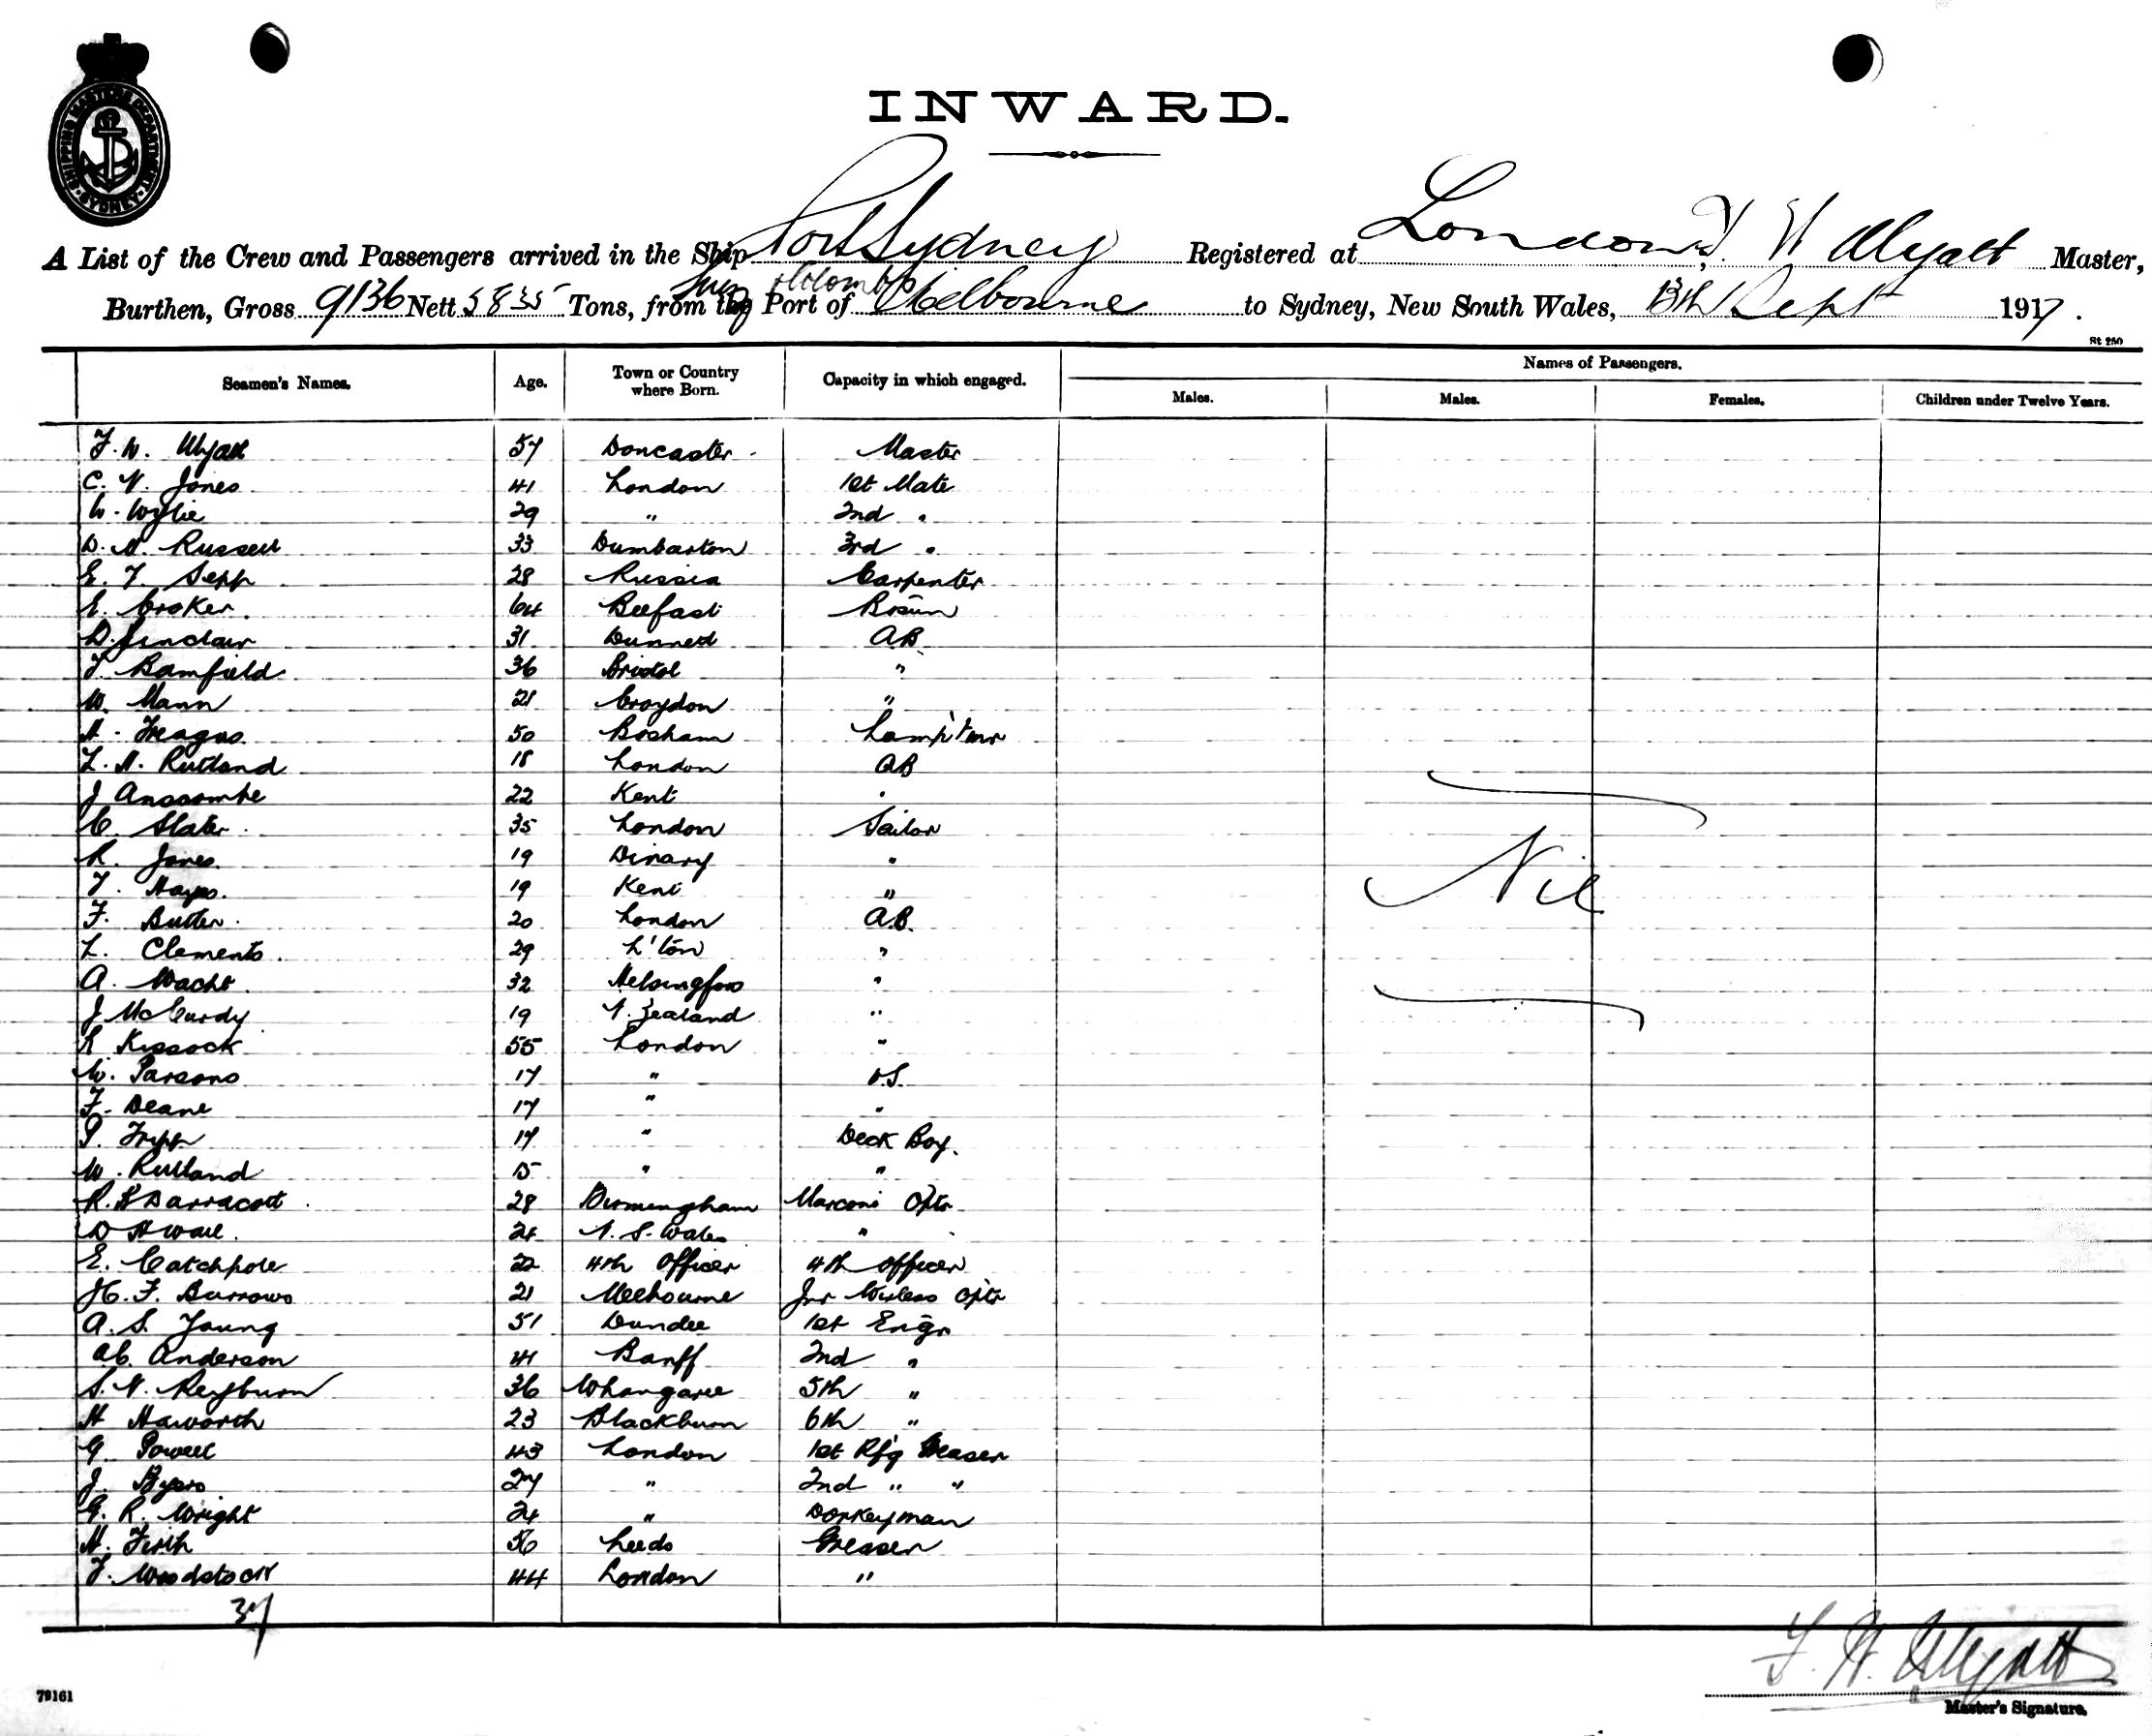 SHIPPING MASTERS DEPARTMENT SYDNEY
INWARD.
A List of the Crew and Passengers arrived in the Ship Port Sydney Registered at London, F. W Wyatt Master,
Suez Colombo
Burthen, Gross 9136 Nett 5835 Tons, from the Port of Melbourne to Sydney, New South Wales, 13th Sept 1917.
St 250
Seamen's Names. Age. Town or Country where Born. Capacity in which engaged. Names of Passengers.
Males. Males. Females. Children under Twelve Years.
F. W. Wyatt 57 Doncaster Master
C. V. Jones 41 London 1st Mate
W. Wylie 29 " 2nd "
D. M. Russell 33 Dumbarton 3rd "
E. T. Sepp 28 Russia Carpenter
E. Croker 64 Belfast Bosun
D. Sinclair 31 Dunnett AB
T. Bamfield 36 Bristol "
W. Mann 21 Croydon "
H. Treagus 50 Bosham Lamp'tmr
L. A. Rutland 18 London AB
J Anscombe 22 Kent "
C. Slater 35 London Sailor
R. Jones 19 "
T. Hayes 19 Kent "
F. Butler 20 London A.B.
L. Clements 29 L'ton "
A. Wacht 32 Helsingfors "
J McCurdy 19 N. Zealand "
R Kissock 55 London "
W. Parsons 17 " O.S.
F. Deane 17 " "
P. Tripp 17 " Deck Boy.
W. Rutland 15 " "
R. Darracott 28 Birmingham Marconi Optr
D H Wall 24 N. S. Wales "
E. Catchpole 22 4th Officer 4th Officer
H. F. Burrows 21 Melbourne Jnr Wireless Optr
A. S. Young 51 Dundee 1st Engr
A.C. Anderson 41 Banff 2nd "
S. N. Reyburn 36 Whangarei 5th "
H Haworth 23 Blackburn 6th "
G. Powell 43 London 1st Rfg Greaser
J. Byers 27 " 2nd " "
G. R. Wright 24 " Donkeyman
H. Firth 56 Leeds Greaser
T. Woodstock 44 London "
Nil
37
F. W. Wyatt
Master's Signature.
79161